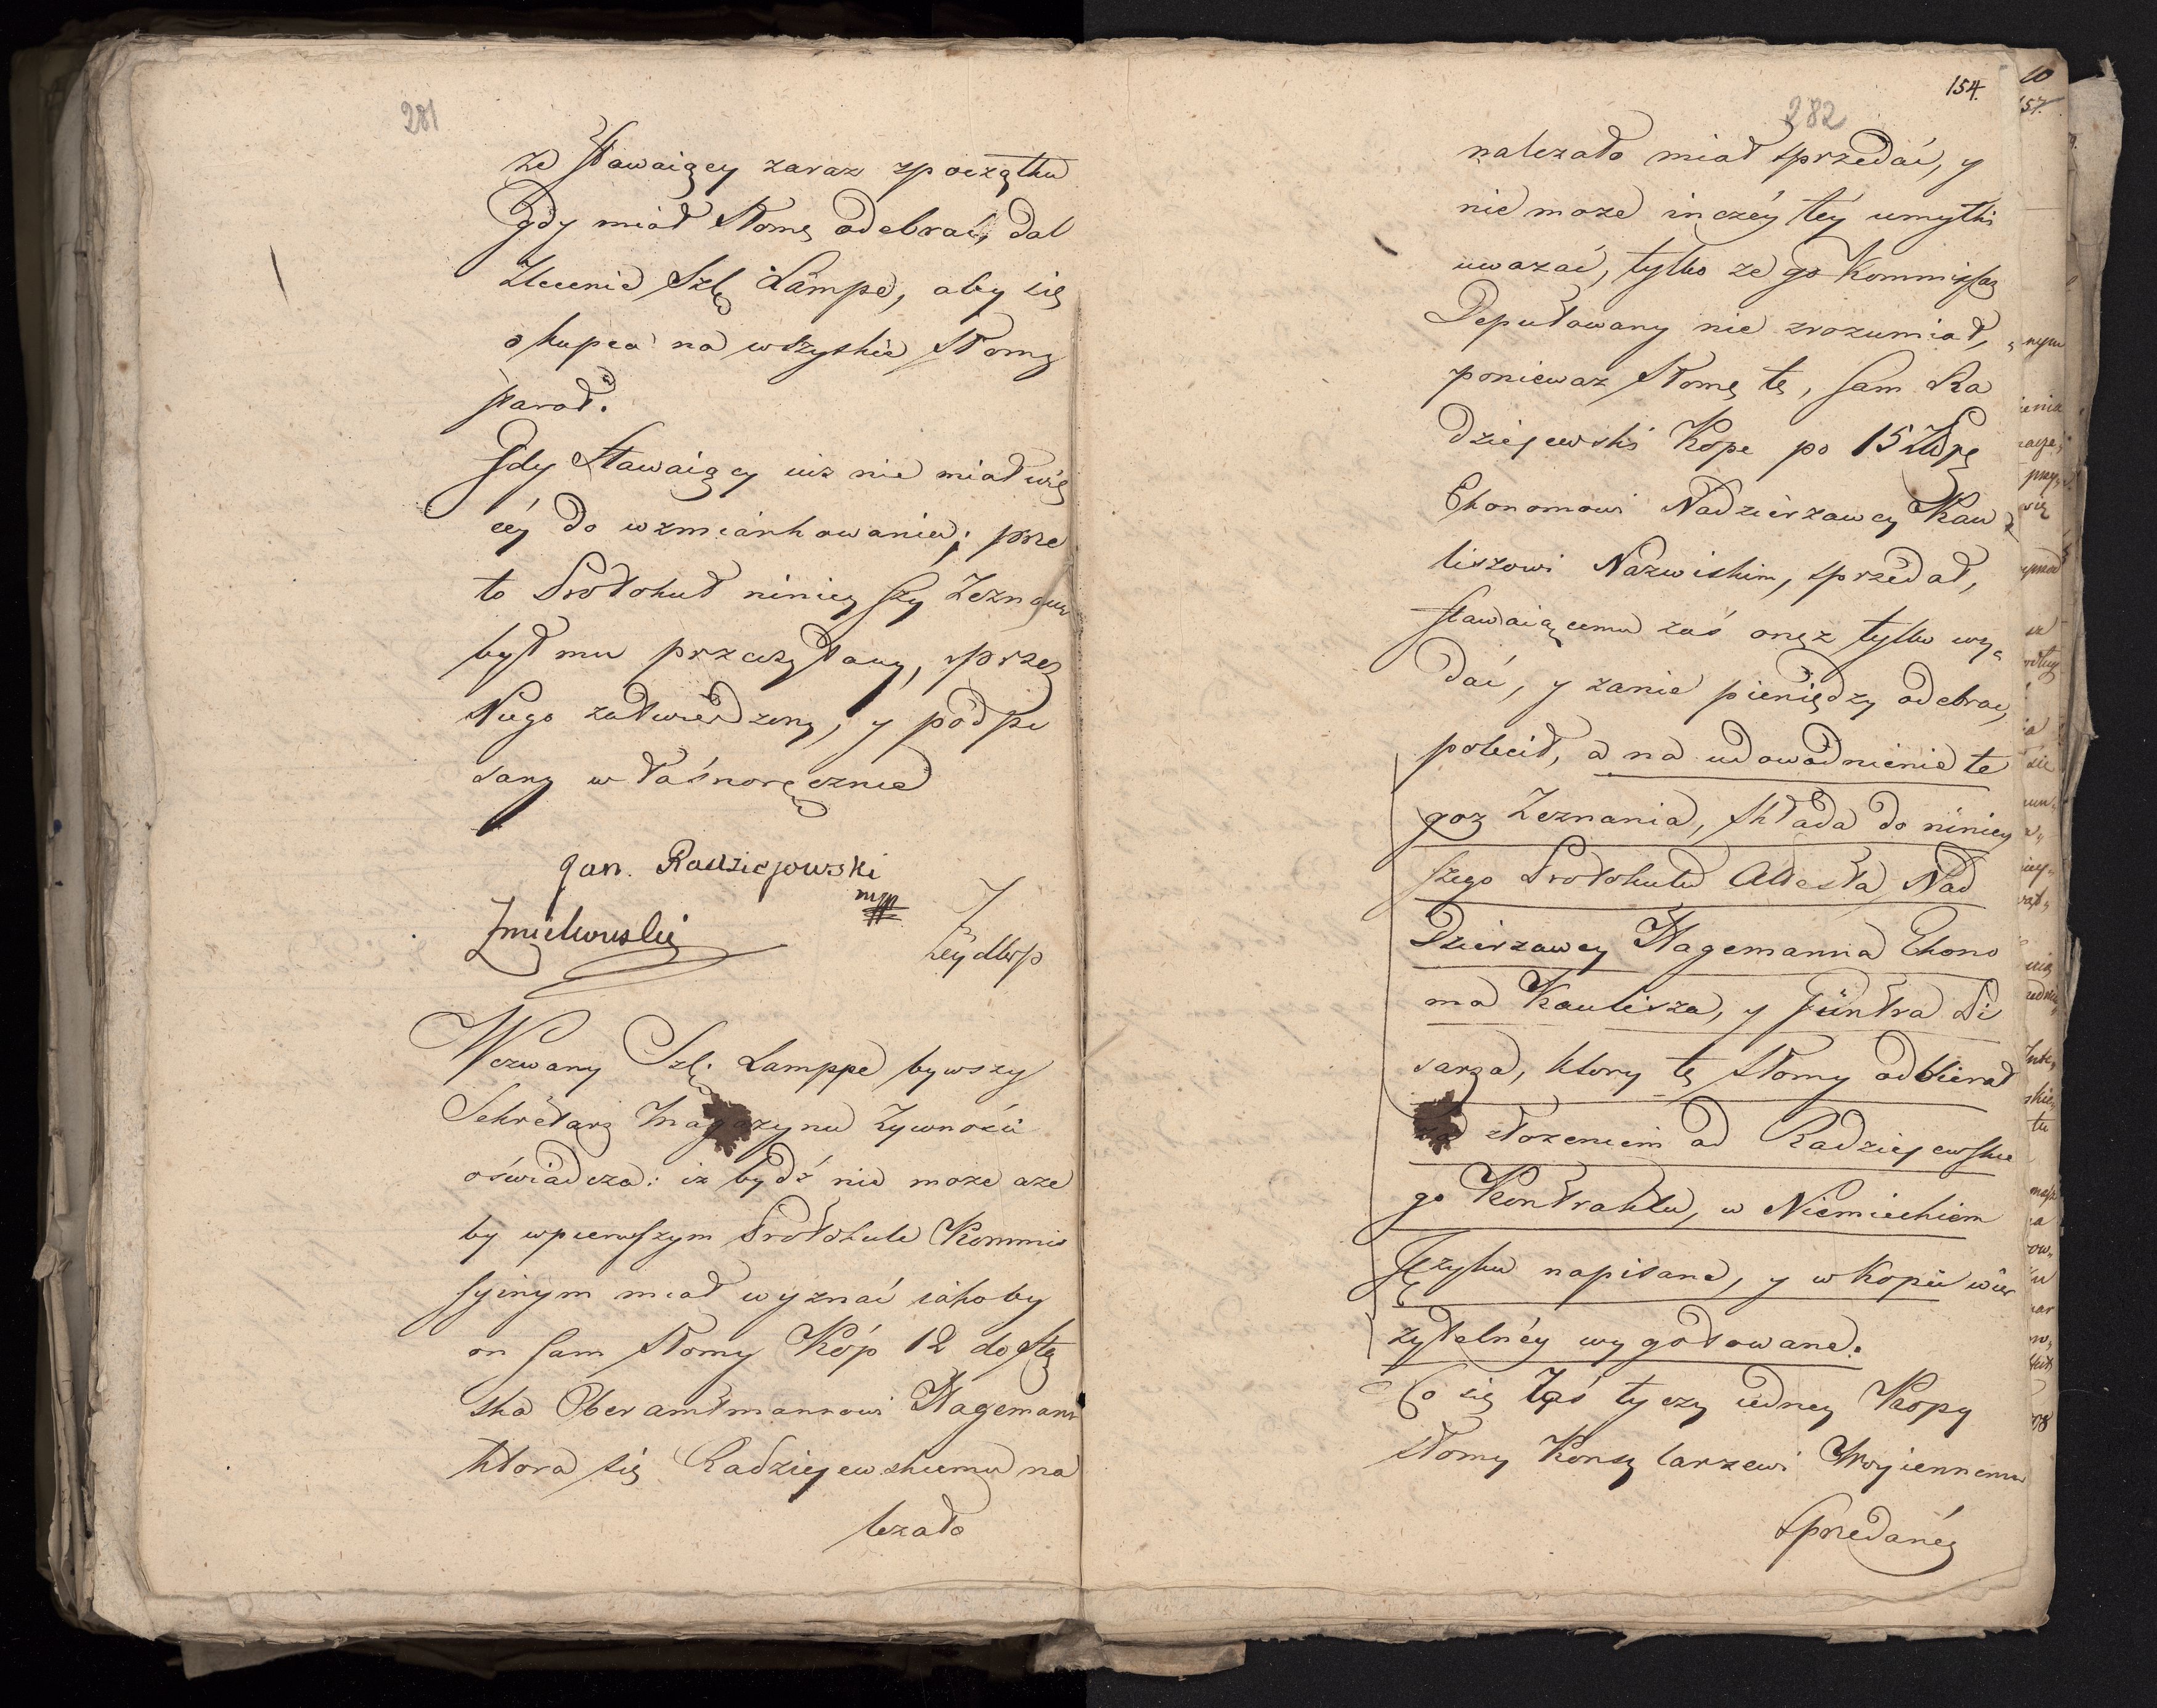 281
że stawaiący zaraz zpoczątku
Gdy miał słomę odebrać, dał
Zlecenie Szl. Lampe, aby się
o kupca na wszyskie słomę
starał.
Gdy Stawaiący iuż nie miał wię
céy do wzmiankowania; prze
to Protokuł ninieyszy Zeznania
był mu przeczytany, przez
Niego zatwierdzony, y podpi
sany własnoręcznie
Jan. Radziejowski
mpp
Zmichowski
Zeydler
Wezwany Szl. Lamppe bywszy
Sekretarz Magazynu Żywności
oświadcza: iż bydź nie może aże
by wpierwszym Protokule Kommis
syinym miał wyznać iakoby
on sam słomy Kóp 12 do Stę
ska Oberamtmannowi Hagemann
która się Radziejewskiemu na
leżało
154.
282
należało miał sprzedać, y
nie może inczéy téy umyłki
uważać, tylko że go Kommissarz
Deputowany nie zrozumiał,
ponieważ słomę tę, sam Ra
dziejewski Kopę po 15
Ekonomowi Naddzierżawcy Kau
liszowi Nazwiskim, sprzedał,
stawaiącemu zaś onęż tylko wy
dać, y zanie pieniędzy odebrać,
polecił, a na udowodnienie te
goż Zeznania, składa do niniey
szego Protokułu Attesta Nad
Dzierzawcy Hagemanna Ekono
ma Kaulisza, y Güntra Pi
sarza, ktory tę słomy odbierał
za złożeniem od Radziejewskie
go Kontraktu, w Niemieckiem
Języku napisane, y w kopii wier
zytelnéy wygotowane.
Co się zaś tyczy iedney Kopy
słomy Konsyliarzewi Woyiennemu
sprzedanéy